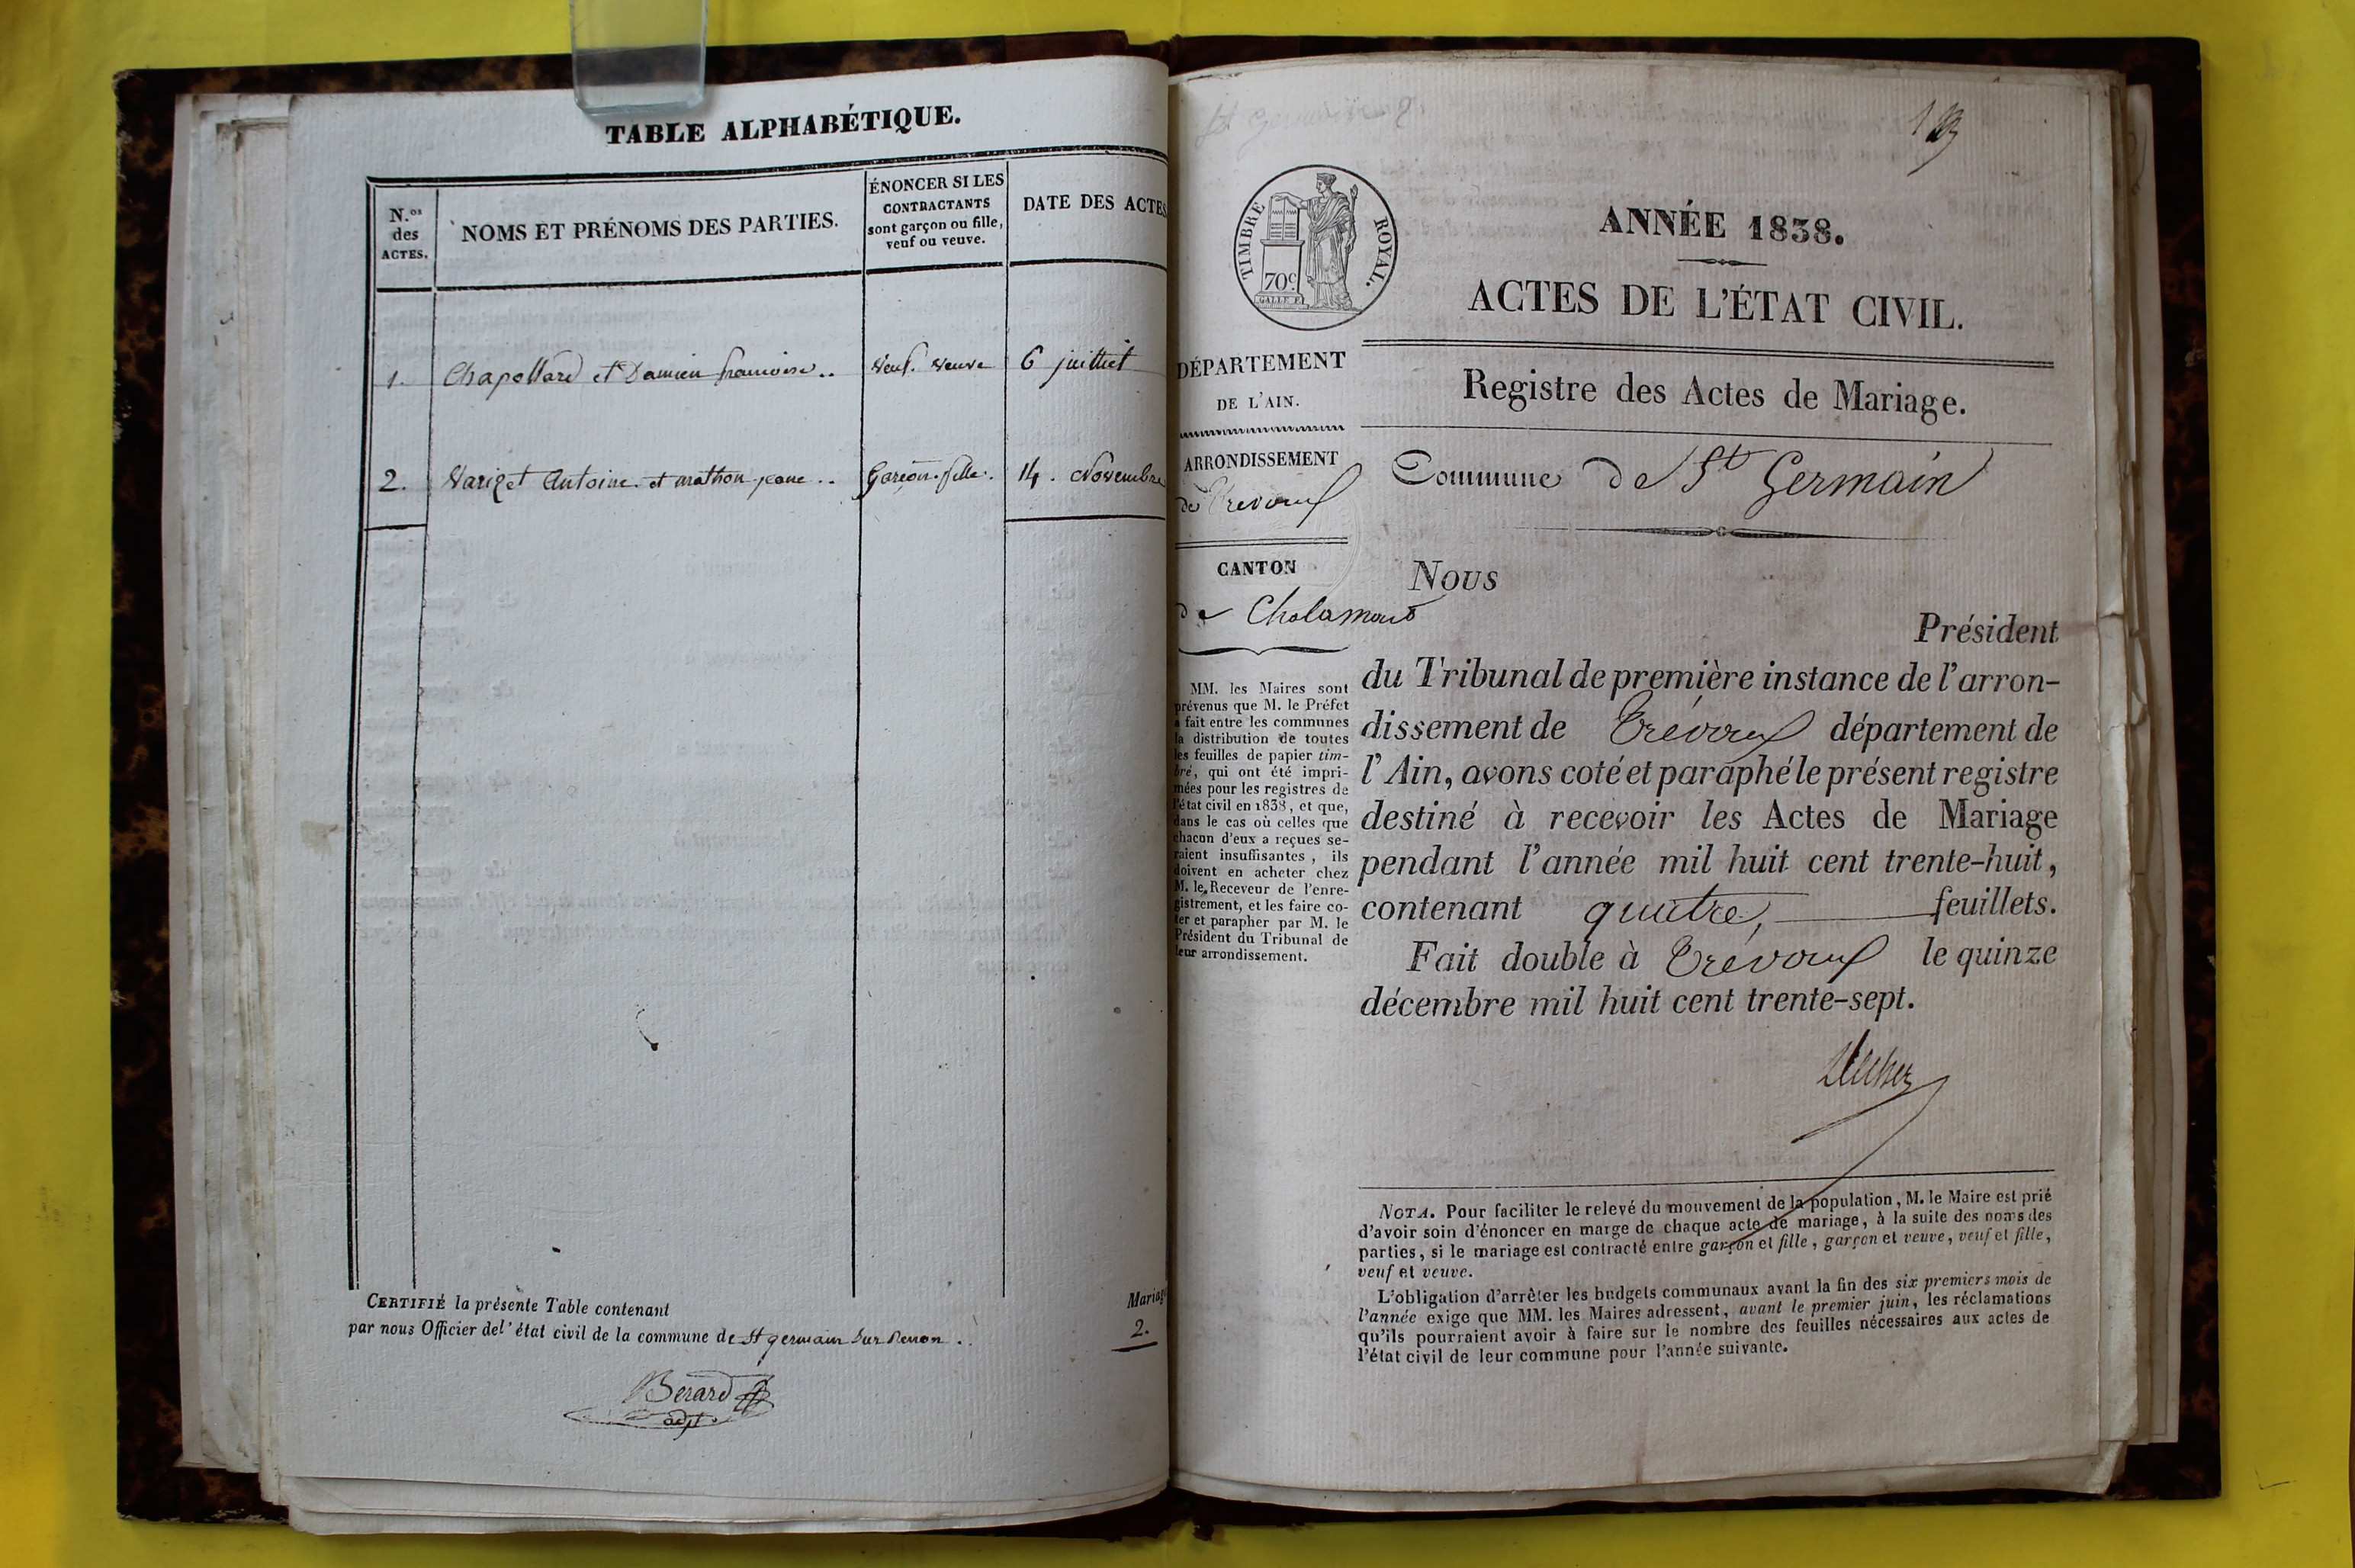 TABLE ALPHABÉTIQUE.
N.os
des
ACTES.
NOMS ET PRÉNOMS DES PARTIES.
ÉNONCER SI LES
CONTRACTANTS
sont garçon ou fille,
veuf ou veuve.
DATE DES ACTES
1. Chapollard et Damien francoise.. Veuf. Veuve 6 juillet
2. Variget Antoine et mathon jeane .. Garçon. fille. 14. Novembre
CERTIFIÉ la présente Table contenant Mariage
par nous Officier de l'état civil de la commune de St germain Sur Renon .. 2.
Bérard
adjt.
TIMBRE ROYAL.
70c
GALLE F.
ANNÉE 1838.
ACTES DE L'ÉTAT CIVIL.
DÉPARTEMENT
DE L'AIN.
ARRONDISSEMENT
de Trévoux
CANTON
de Chalamont
MM. les Maires sont
prévenus que M. le Préfet
a fait entre les communes
la distribution de toutes
les feuilles de papier tim-
bré, qui ont été impri-
mées pour les registres de
l'état civil en 1838, et que,
dans le cas où celles que
chacon d'eux a reçues se-
raient insuffisantes, ils
doivent en acheter chez
M. le Receveur de l'enre-
gistrement, et les faire co-
ter et parapher par M. le
Président du Tribunal de
leur arrondissement.
Registre des Actes de Mariage.
Commune de St Germain
Nous
Président
du Tribunal de première instance de l'arron-
dissement de Trévoux département de
l'Ain, avons coté et paraphé le présent registre
destiné à recevoir les Actes de Mariage
pendant l'année mil huit cent trente-huit,
contenant quatre, feuillets.
Fait double à Trévoux le quinze
décembre mil huit cent trente-sept.
NOTA. Pour faciliter le relevé du mouvement de la population, M. le Maire est prié
d'avoir soin d'énoncer en marge de chaque acte de mariage, à la suite des noms des
parties, si le mariage est contracté entre garçon et fille, garçon et veuve, veuf et fille,
veuf et veuve.
L'obligation d'arrêter les budgets communaux avant la fin des six premiers mois de
l'année exige que MM. les Maires adressent, avant le premier juin, les réclamations
qu'ils pourraient avoir à faire sur le nombre des feuilles nécessaires aux actes de
l'état civil de leur commune pour l'année suivante.